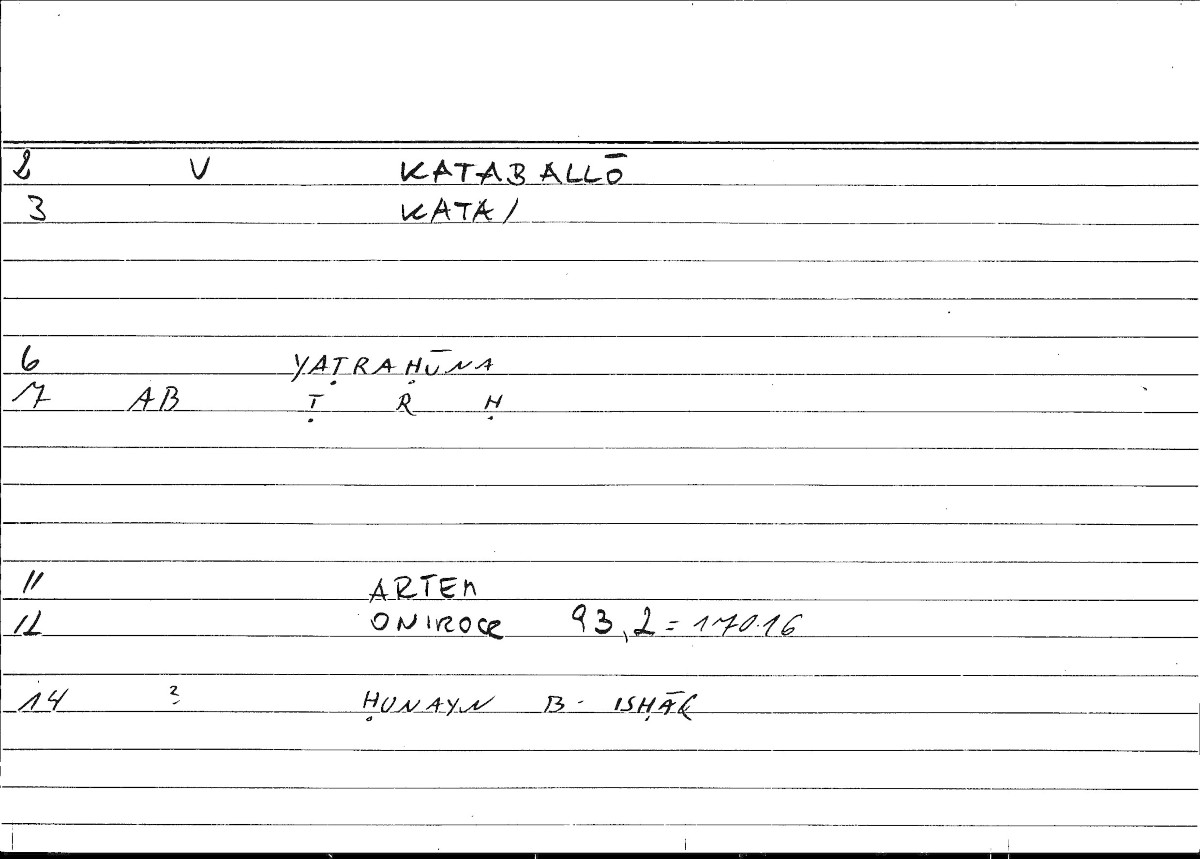 2 V KATABALLŌ
3 KATA/
6 YAṬRAḤŪNA
7 AB Ṭ R Ḥ
11 ARTEM
12 ONIROCR 93,2 = 170.16
14 ? ḤUNAYN B. ISḤĀḲ